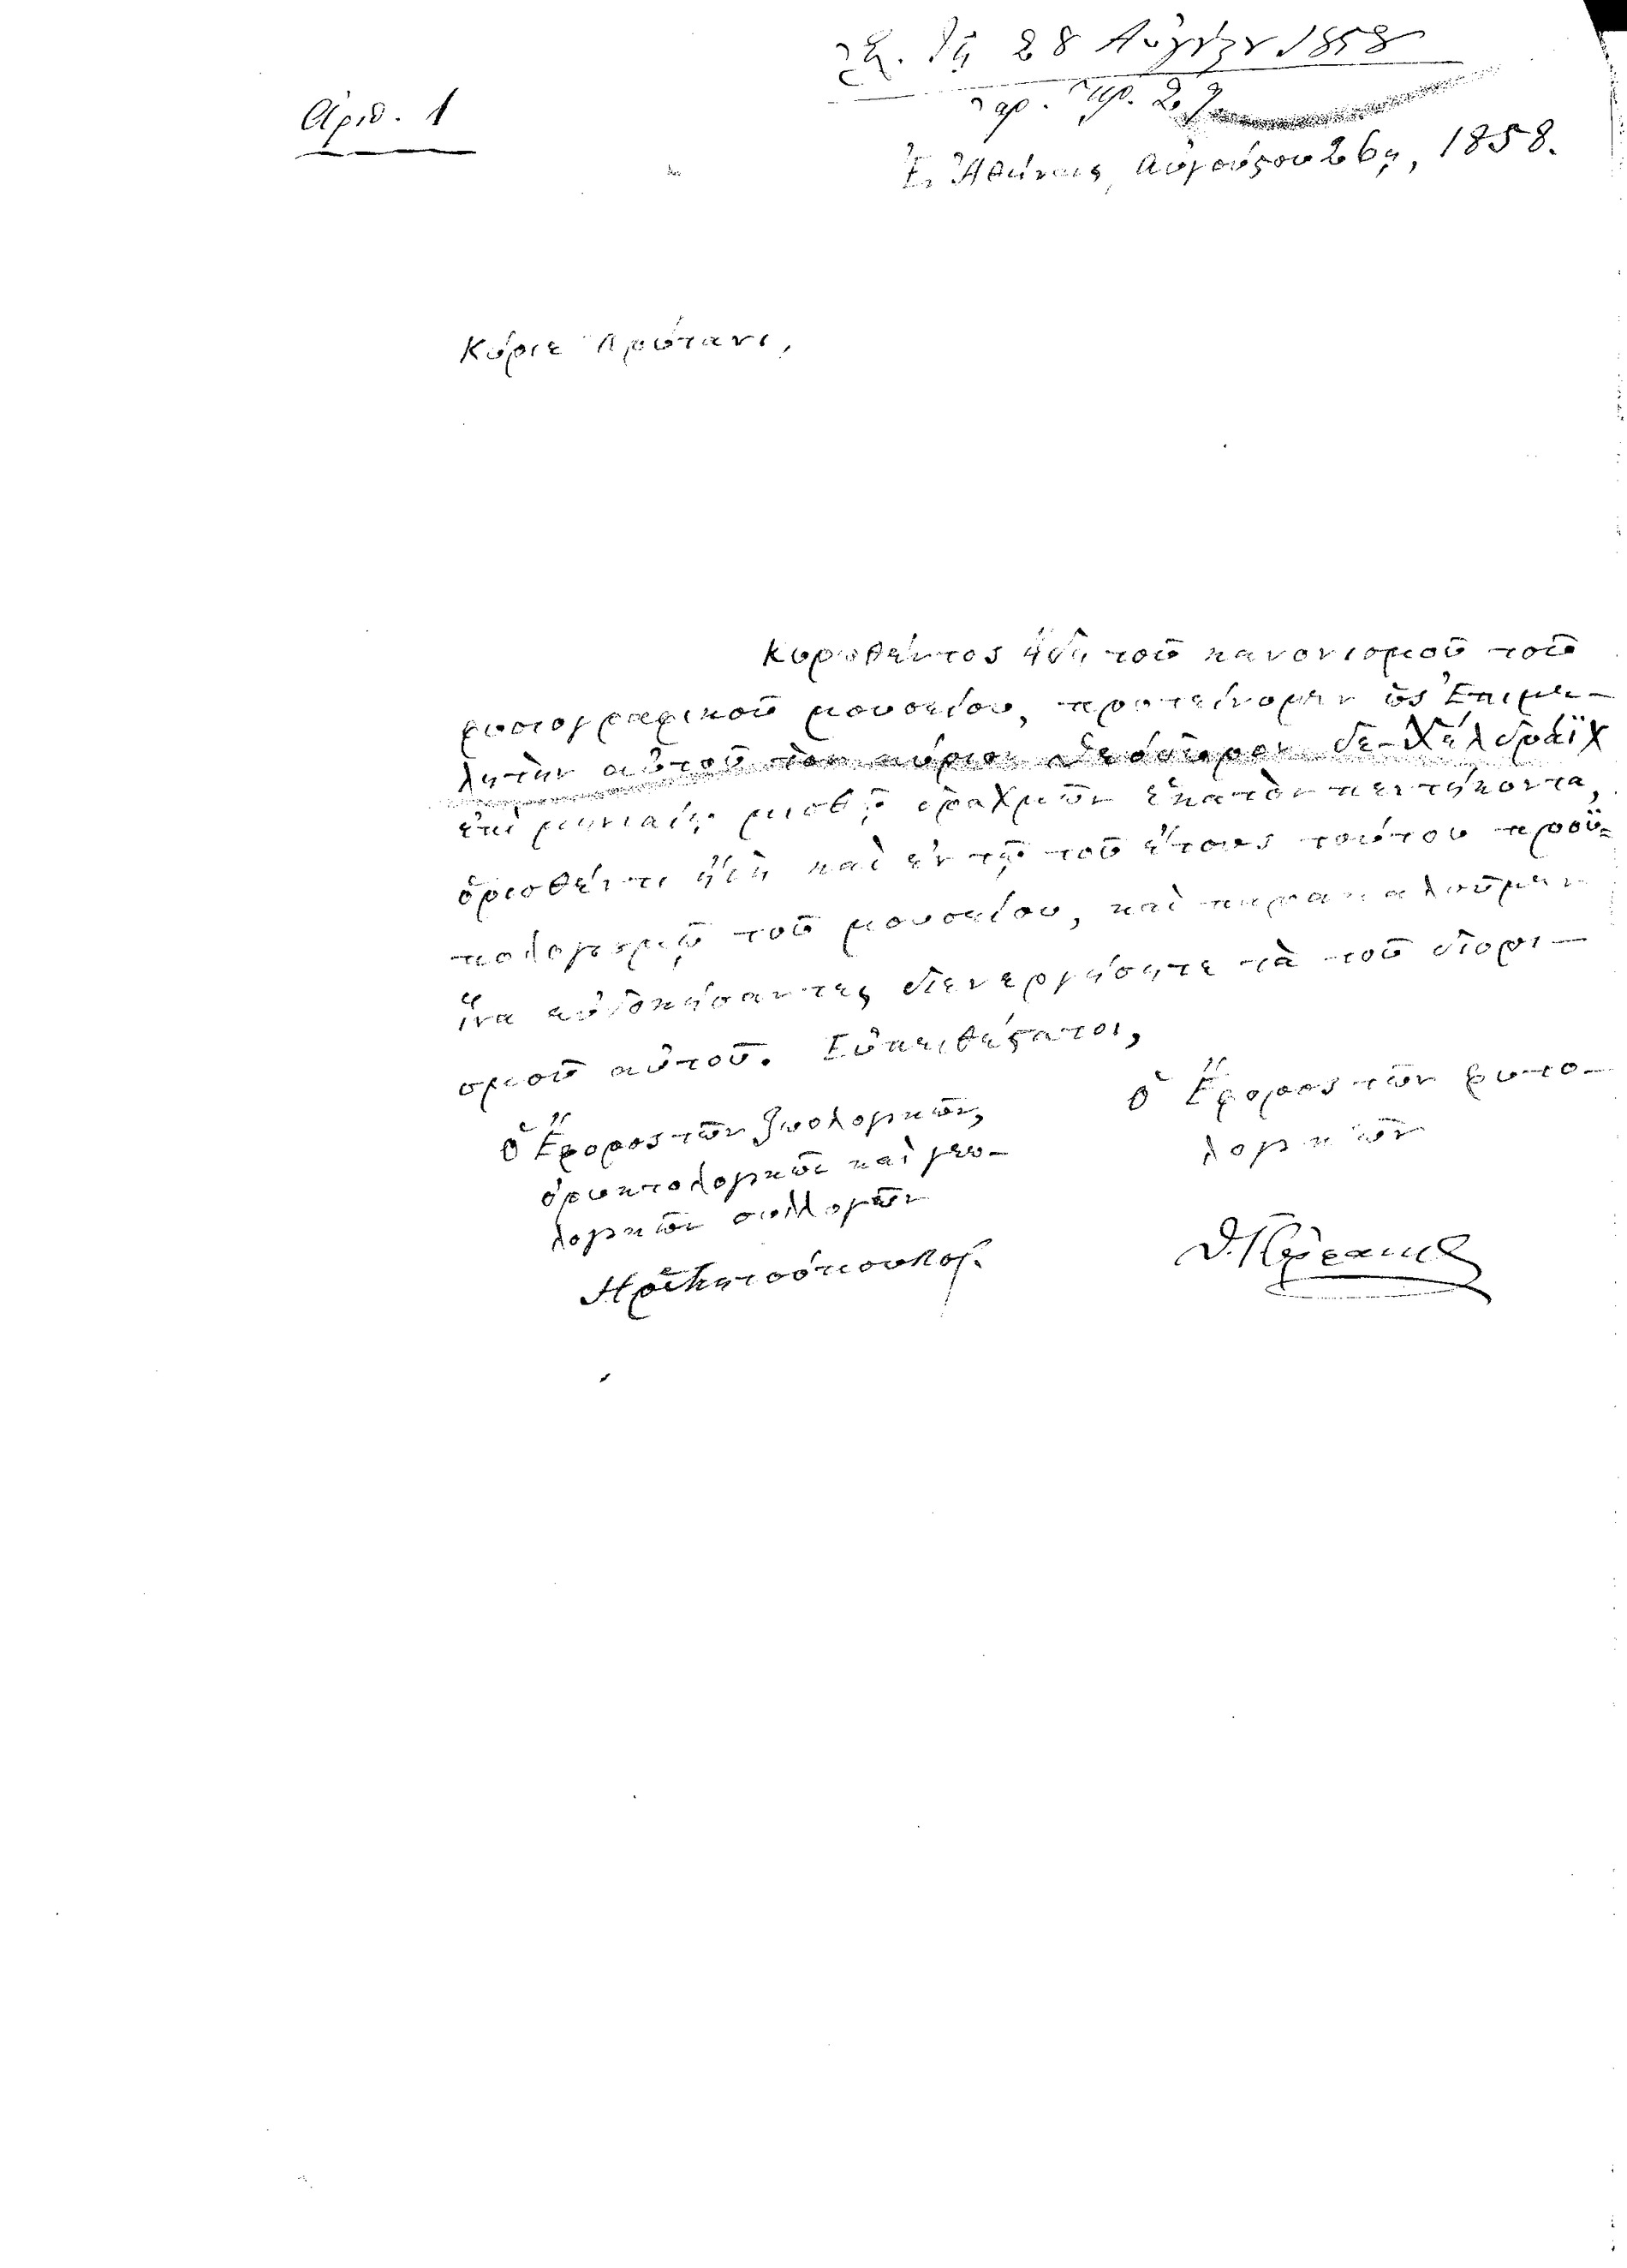 Ἀριθ. 1
τῇ 28 Αὐγούστου 1858
ἀρ. πρ. 29
Ἐν Ἀθήναις, Αὐγούστου 26ῃ, 1858.
Κύριε Πρύτανι,
Κυρωθέντος ἤδη τοῦ κανονισμοῦ τοῦ
φυσιογραφικοῦ μουσείου, προτείνομεν ὡς Ἐπιμε-
λητὴν αὐτοῦ τὸν κύριον Θεόδωρον δε-Χέλδραϊχ
ἐπὶ μηνιαίῳ μισθῷ δραχμῶν ἑκατὸν πεντήκοντα,
ὁρισθέντι ἤδη καὶ ἐν τῷ τοῦ ἔτους τούτου προϋ-
πολογισμῷ τοῦ μουσείου, καὶ παρακαλοῦμεν
ἵνα εὐδοκήσαντες διενεργήσητε τὰ τοῦ διορι-
σμοῦ αὐτοῦ. Εὐπειθέστατοι,
ὁ Ἔφορος τῶν ζωολογικῶν,
ὀρυκτολογικῶν καὶ γεω-
λογικῶν συλλογῶν
Ἡρ. Μητσόπουλος.
ὁ Ἔφορος τῶν φυτο-
λογικῶν